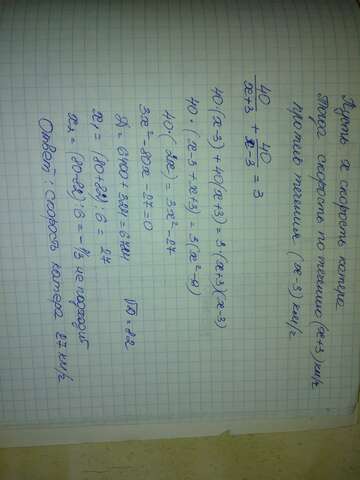 Пусть x скорость катера
Тогда скорость по течению (x+3) км/ч
против течения (x-3) км/ч
40/(x+3) + 40/(x-3) = 3
40·(x-3)+40(x+3)=3(x+3)(x-3)
40·(x-3+x+3)=3(x²-9)
40·(2x)=3x²-27
3x²-80x-27=0
D=6400+324=6724 √D=82
x₁=(80+82):6=27
x₂=(80-82):6=-1/3 не подходит
Ответ: скорость катера 27 км/ч